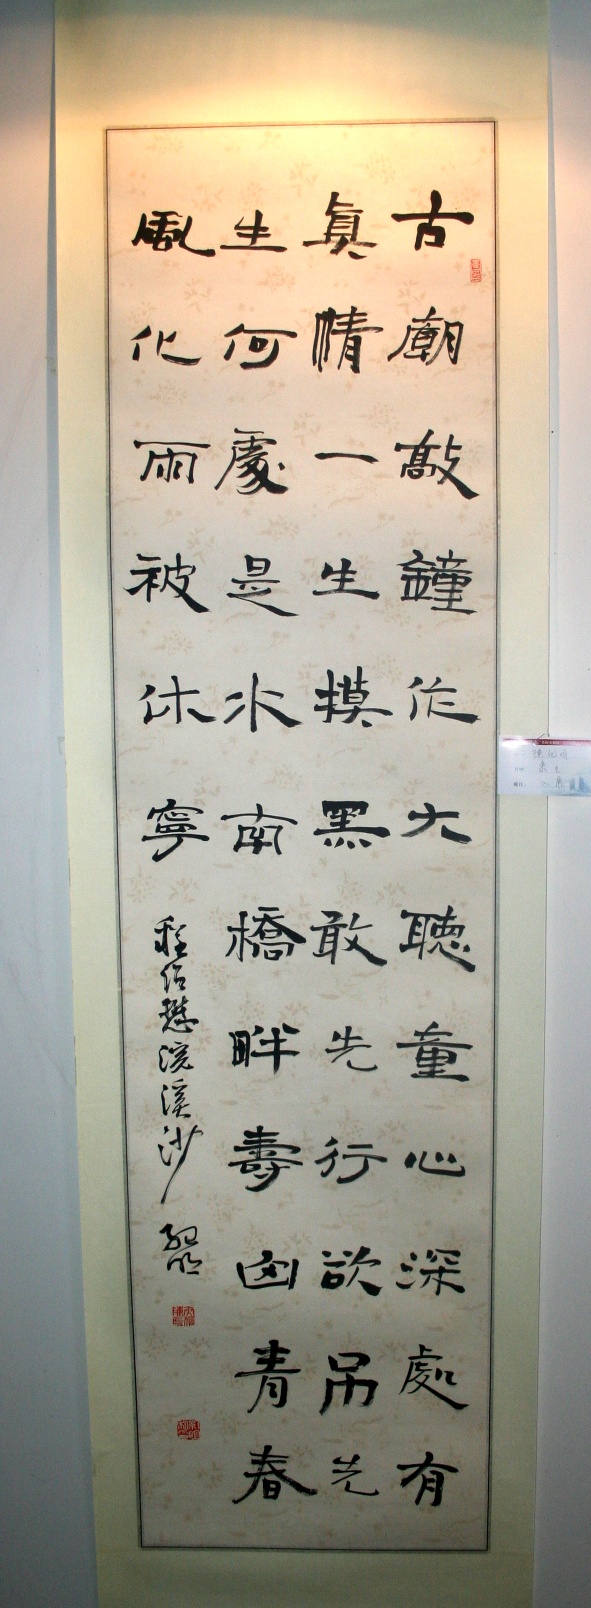 古廟敲鐘作大聽童心深處有
眞情一生摸黑敢先行欲吊先
生何處是水南橋畔壽青春
風化雨被休寧
程 浣溪沙